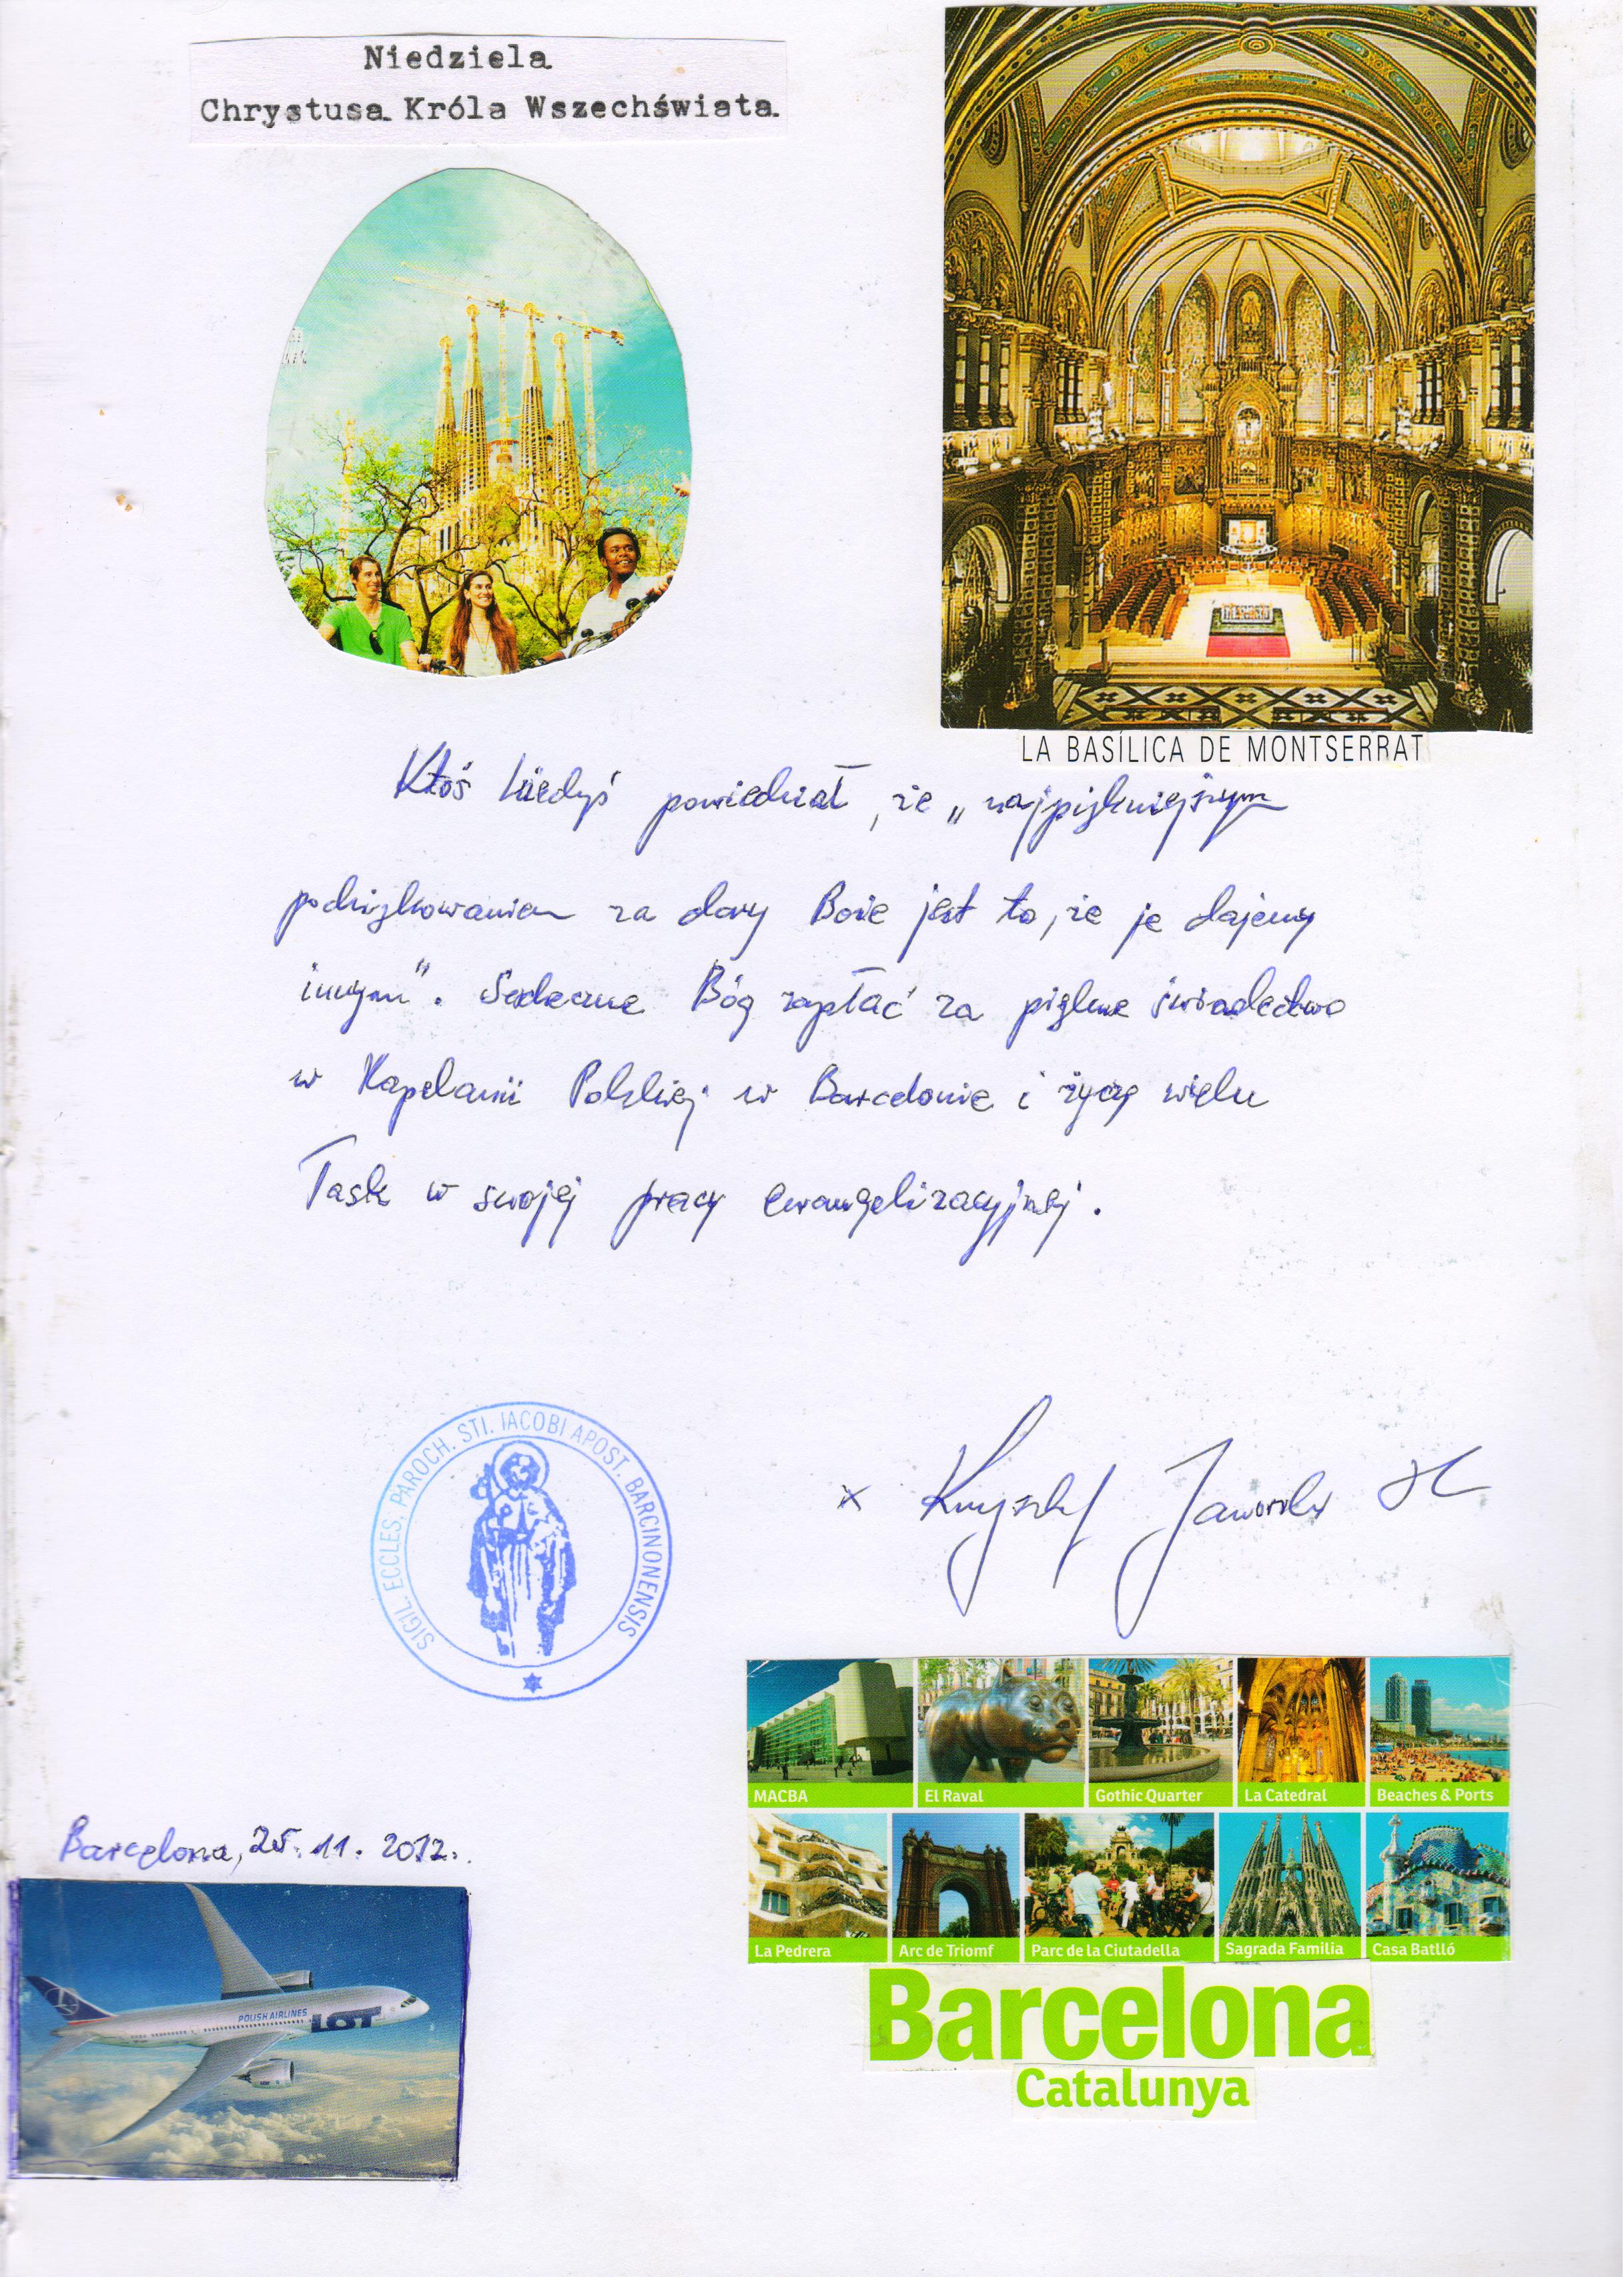 Niedziela
Chrystusa Króla Wszechświata
LA BASÍLICA DE MONTSERRAT
Ktoś kiedyś powiedział, że „najpiękniejszym
podziękowaniem za dary Boże jest to, że je dajemy
innym”. Serdeczne Bóg zapłać za piękne świadectwo
w Kapelanii Polskiej w Barcelonie i życzę wielu
łask w swojej pracy ewangelizacyjnej.
SIGIL. ECCLES. PAROCH. STI. IACOBI APOST. BARCINONENSIS
x Krzysztof Jaworski
MACBA
El Raval
Gothic Quarter
La Catedral
Beaches & Ports
La Pedrera
Arc de Triomf
Parc de la Ciutadella
Sagrada Familia
Casa Batlló
Barcelona
Catalunya
Barcelona, 25.11.2012.
POLISH AIRLINES
LOT